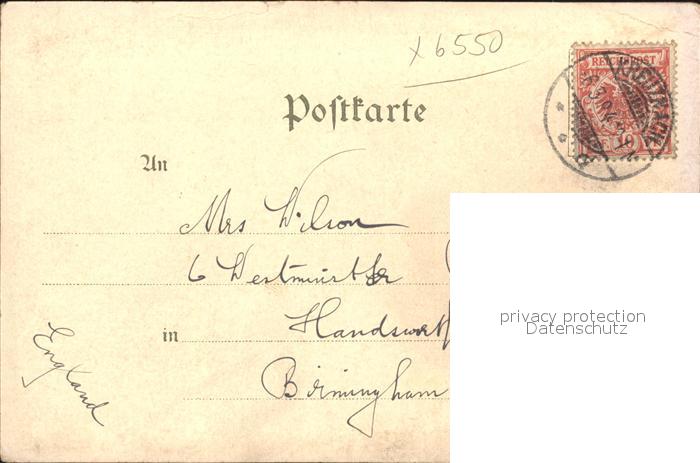 x 6550
REICHSPOST
KREUZNACH
10
Postkarte
An
Mrs Wilson
6 Westminster
in Handswort
Birmingham
England
privacy protection
Datenschutz